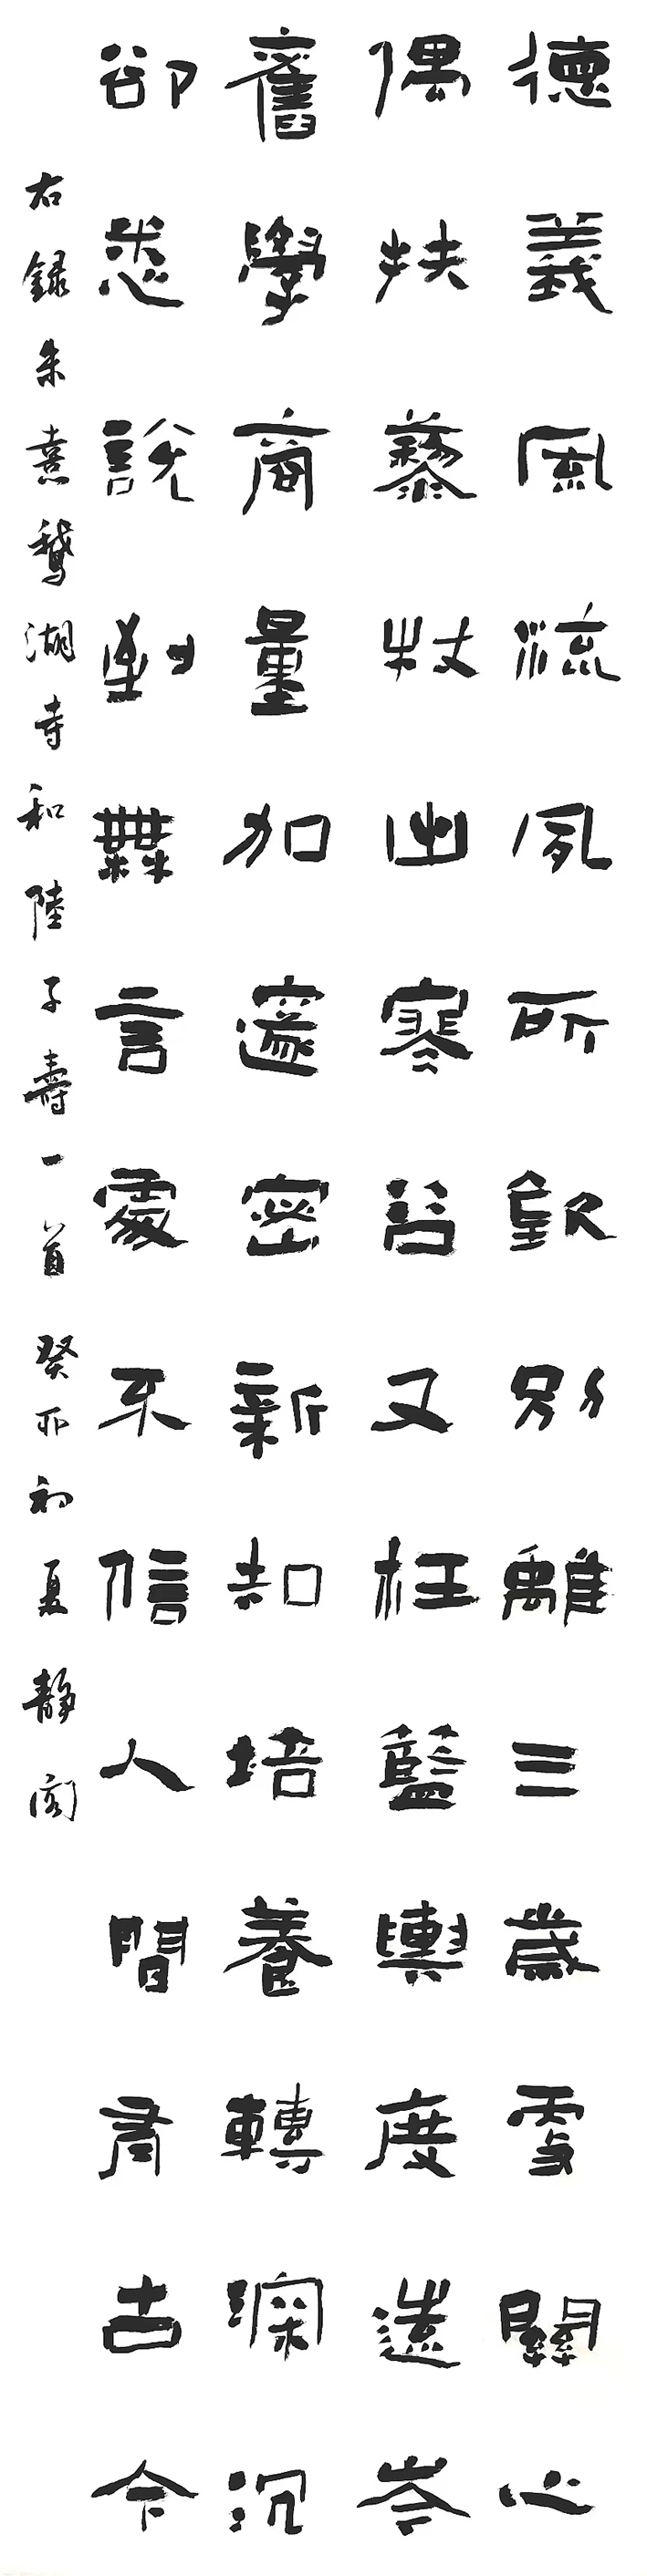 德義風流夙所欽別離三歲更關心
偶扶藜杖出寒谷又枉籃輿度遠岑
舊學商量加邃密新知培養轉深沉
卻愁說到無言處不信人間有古今
右録朱熹鵝湖寺和陸子壽一首癸卯初夏靜閣